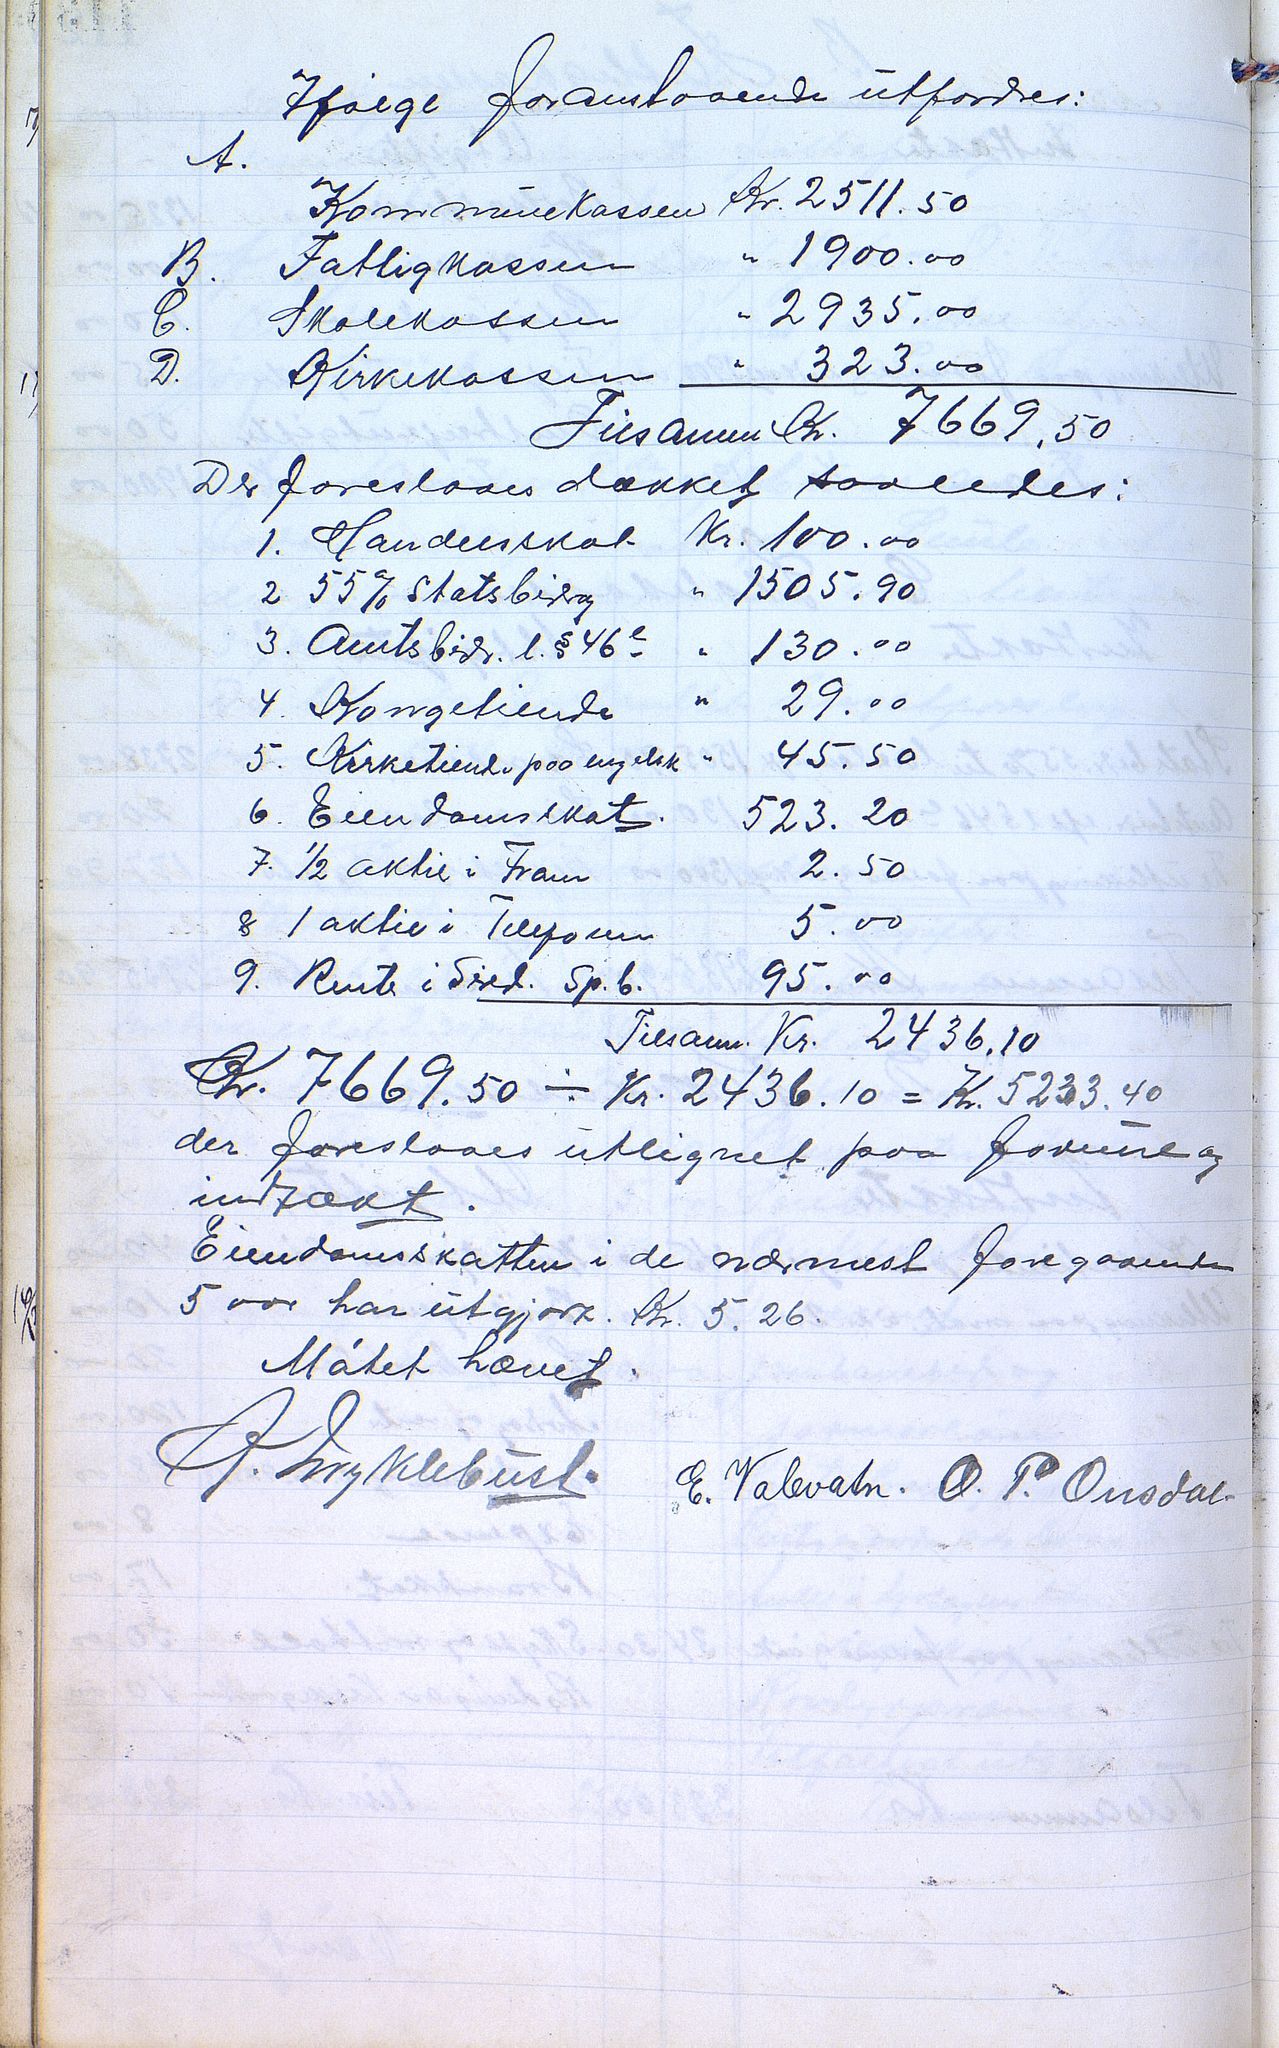 Ifølge foranstaaende utfordres:
A.
Kommunekassen Kr. 2511.50
B. Fattigkassen " 1900.00
C. Skolekassen " 2935.00
D. Kirkekassen " 323.00
Tilsammen Kr. 7669.50
Der foreslaaes dækket saaledes:
1. Handelsskat Kr. 100.00
2 55% Statsbidrag " 1505.90
3. Amtsbidr. l. § 46 e " 130.00
4. Kongetiende " 29.00
5. Kirketiende paa engelsk " 45.50
6. Eiendomsskat. 523.20
7. 1/2 aktie i Fram 2.50
8 1 aktie i Telefonen 5.00
9. Rente i Sird. Sp.b. 95.00
Tilsam. Kr. 2436.10
Kr. 7669.50 ÷ Kr. 2436.10 = Kr. 5233.40
der foreslaaes utlignet paa formue og
indtækt.
Eiendomsskatten i de nærmest foregaaende
5 aar har utgjort. Kr. 5.26.
Møtet hævet.
A. Myklebust. E. Valevatn. O. P. Ousdal